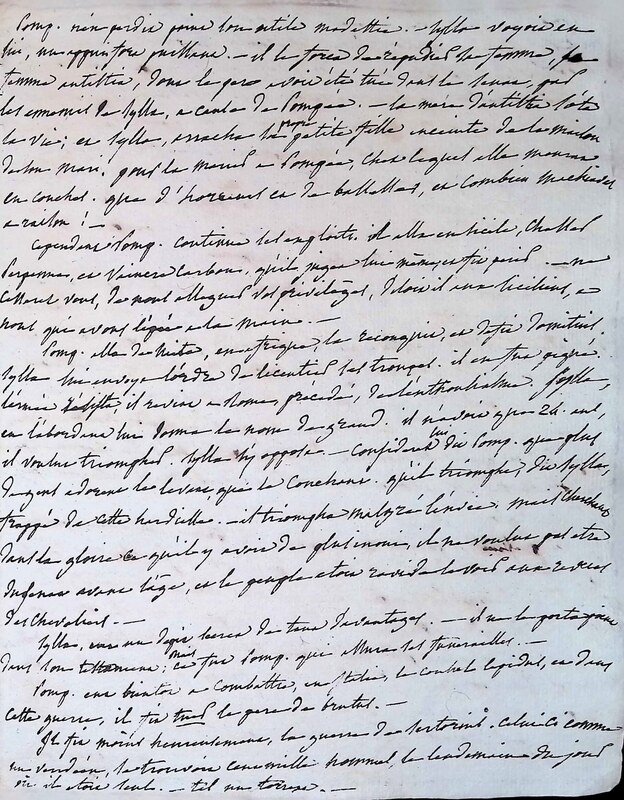 Pomp. n'en perdit point son utile modestie. – Sylla voyoit en
lui, un appui nécessaire. – il le força de répudier sa femme, sa
femme antistia, dont le pere avoit été tué dans le senat, par
les ennemis de Sylla, a cause de Pompée. – la mere d'antistia s'ôta
la vie; et Sylla, arracha sa propre petite fille enceinte de la maison
de son mari, pour la marier a Pompée, chez lequel elle mourut
en couches. que d'horreurs et de bassesses, et combien
a raison ! –
Cependant Pomp. continue ses exploits. il alla en sicile, chassa
Perpenna, et vainquit Carbon, qu'il jugea lui même, et fit périr. – ne
cesserez vous, de nous alléguer vos privilèges, disoit il aux siciliens, a
nous qui avons l'épée a la main. –
Pomp. alla de suite, en afrique, la reconquit, et défit domitius.
Sylla lui envoya l'ordre de licentier ses troupes. il en fut piqué.
l'armée il revint a Rome, précédé, de l'enthousiasme. Sylla,
en l'abordant lui donna le nom de grand. il n'avoit que 24. ans,
il voulut triompher. Sylla s'y opposa. – considerez lui dit Pomp. que plus
de gens adorent le levant que le couchant. qu'il triomphe, dit Sylla,
frappé de cette hardiesse. – il triompha malgré l'envie. mais cherchant
dans la gloire ce qu'il y avoit de plus nouveau, il ne voulut pas etre
du senat avant l'âge, et le peuple etoit ravi de le voir aux revues
des chevaliers. –
Sylla, eut un dépit secret de tant d'avantages. – il ne le porta point
dans son testament; mais ce fut Pomp. qui assura ses funerailles. –
Pomp. eut bientot a combattre, en Italie, le consul Lepidus, et dans
cette guerre, il fit tuer le pere de brutus. –
Il fit moins heureusement, la guerre de sertorius. celui ci comme
un vendéen, se trouvoit cent mille hommes, le lendemain du jour
où il etoit seul. – tel un torrent. –